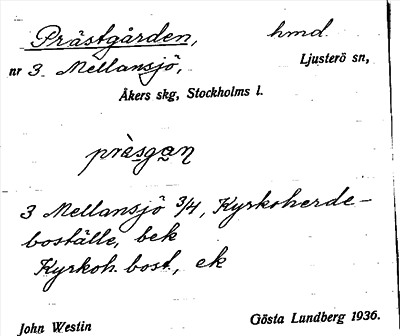 Prästgården, hmd.
nr 3 Mellansjö, Ljusterö sn,
Åkers skg, Stockholms l.
prä̀sgan
3 Mellansjö 3/4, Kyrkoherde-
boställe, bek
Kyrkoh. bost., ek
John Westin Gösta Lundberg 1936.